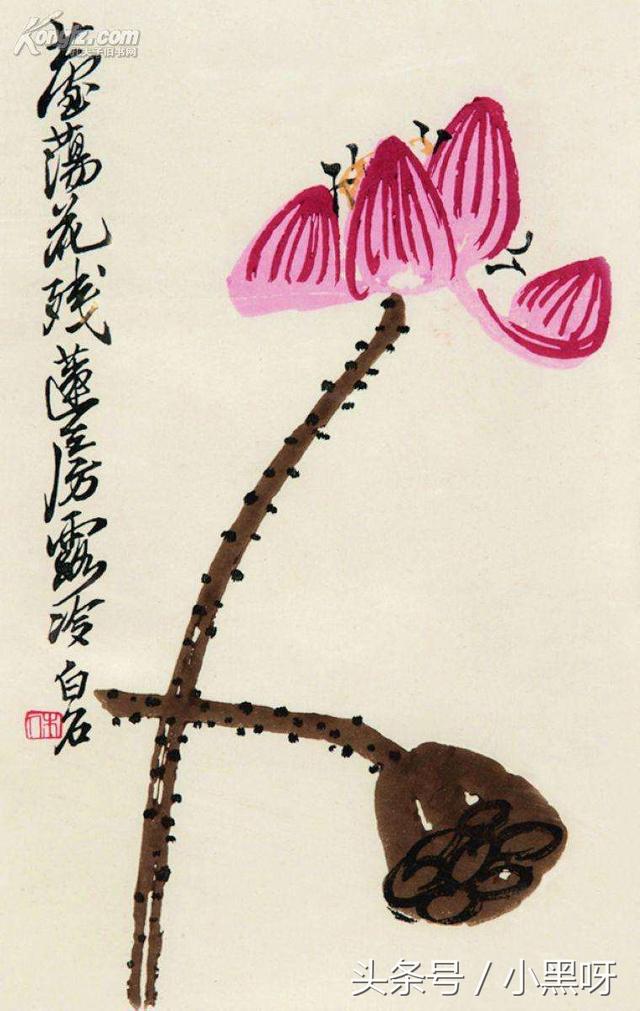 Kongfz.com
孔夫子旧书网
蘆蕩花残蓮房露冷 白石
木人
头条号 / 小黑呀